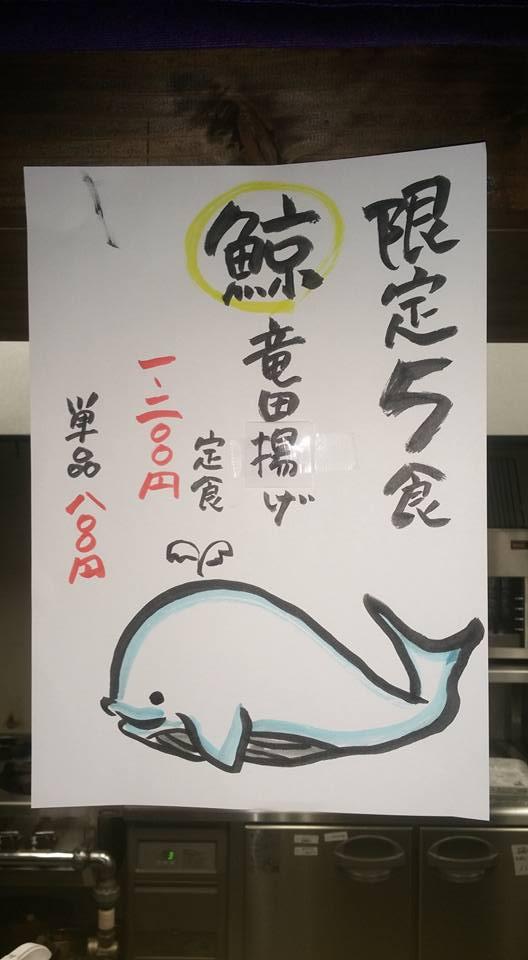 限定5食
鯨竜田揚げ
定食
一、二〇〇円
単品 八〇〇円